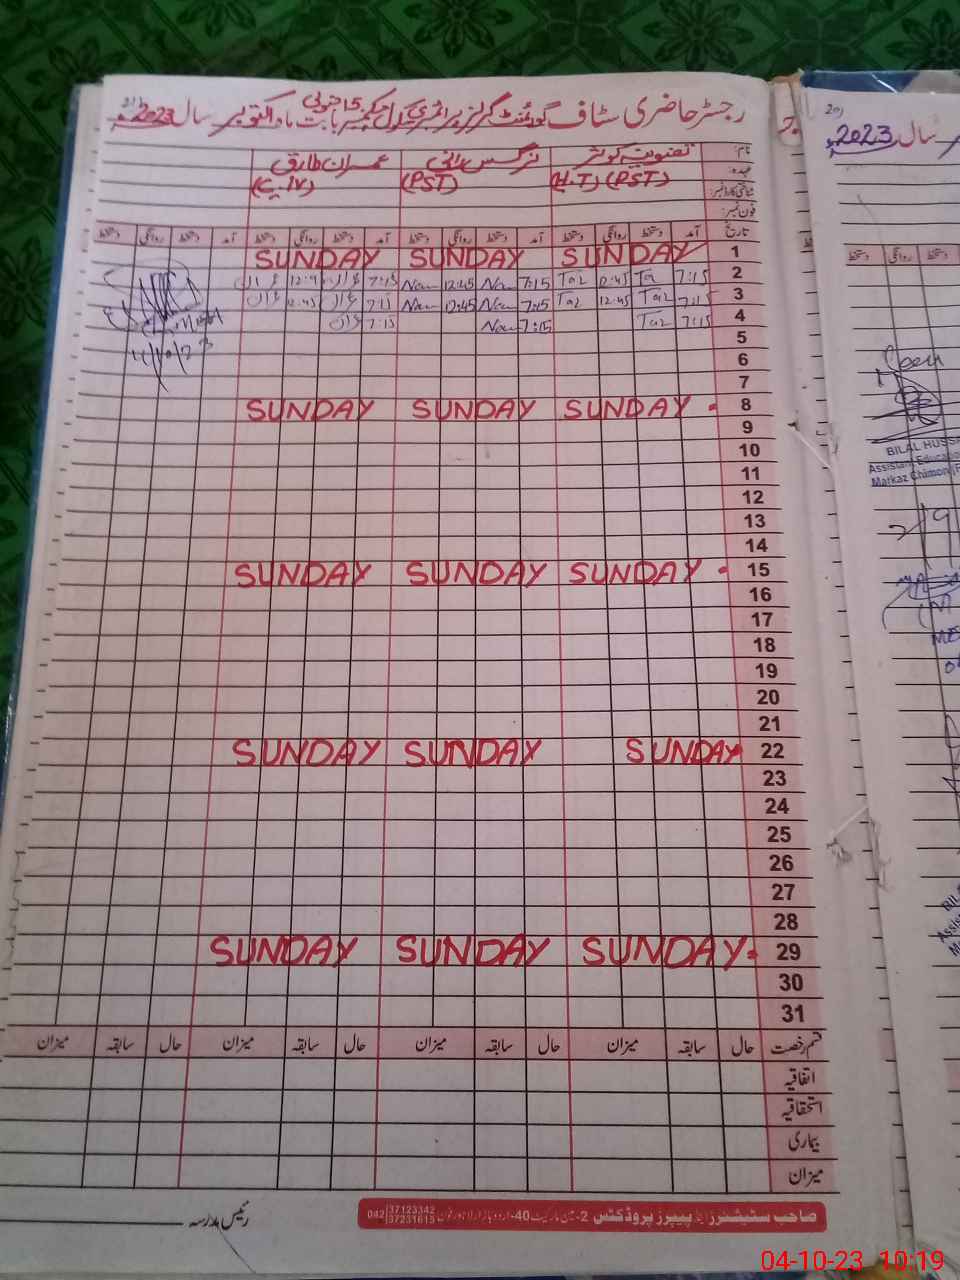 رجسٹر حاضری سٹاف گورنمنٹ گرلز پرائمری سکول 15 جنوبی بابت ماہ اکتوبر سال 2023ء
نام: کوثر نرگس رانی عمران طارق
عہدہ: (H.T) (PST) (PST)
شناختی کارڈ نمبر:
فون نمبر:
تاریخ آمد دستخط روانگی دستخط آمد دستخط روانگی دستخط آمد دستخط روانگی دستخط آمد دستخط روانگی دستخط
1 SUNDAY SUNDAY SUNDAY
2 7:15 Ta 12:45 Taz 7:15 Nar 12:45 Nar 7:15
3 7:15 Taz 12:45 Taz 7:15 Nar 12:45 Nar 7:15 12:45
4 7:15 Taz 7:15 Nar 7:15
5
6
7
8 SUNDAY SUNDAY SUNDAY
9
10
11
12
13
14
15 SUNDAY SUNDAY SUNDAY
16
17
18
19
20
21
22 SUNDAY SUNDAY SUNDAY
23
24
25
26
27
28
29 SUNDAY SUNDAY SUNDAY
30
31
قسم رخصت حال سابقہ میزان حال سابقہ میزان حال سابقہ میزان حال سابقہ میزان
اتفاقیہ
استحقاقیہ
بیماری
میزان
رئیس مدرسہ
صاحب سٹیشنرز اینڈ پیپرز پروڈکٹس 2-مین مارکیٹ 40-اردو بازار لاہور فون 042 37123342 37231615
سال 2023ء
دستخط روانگی دستخط
BILAL HUSSA
Assistant Educatio
Markaz Chimon (F
2/9
04-10-23 10:19